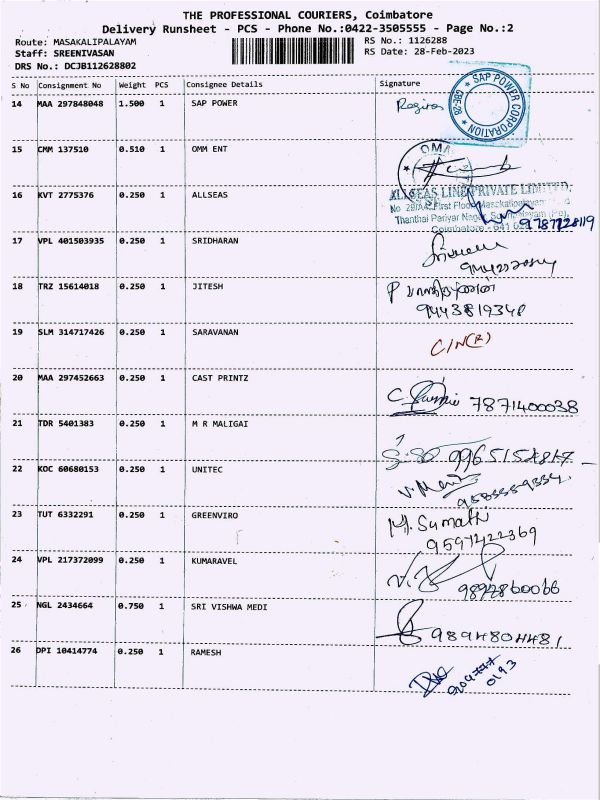 THE PROFESSIONAL COURIERS, Coimbatore
Delivery Runsheet - PCS - Phone No.:0422-3505555 - Page No.:2
Route: MASAKALIPALAYAM
RS No.: 1126288
Staff: SREENIVASAN
RS Date: 28-Feb-2023
DRS No.: DCJB112628802
S No Consignment No Weight PCS Consignee Details Signature
14 MAA 297848048 1.500 1 SAP POWER
SAP POWER CORPORATION CBE-28
15 CMM 137510 0.510 1 OMM ENT
16 KVT 2775376 0.250 1 ALLSEAS
ALLSEAS LINE PRIVATE LIMITED,
First Floor, Masakalipalayam
Thanthai Periyar Nagar,
Coimbatore - 641
9787728119
17 VPL 401503935 0.250 1 SRIDHARAN
18 TRZ 15614018 0.250 1 JITESH
9443819348
19 SLM 314717426 0.250 1 SARAVANAN
C/N(R)
20 MAA 297452663 0.250 1 CAST PRINTZ
7871400038
21 TDR 5401383 0.250 1 M R MALIGAI
22 KOC 60680153 0.250 1 UNITEC
23 TUT 6332291 0.250 1 GREENVIRO
M. Sumathi
9597422369
24 VPL 217372099 0.250 1 KUMARAVEL
9892860066
25 NGL 2434664 0.750 1 SRI VISHWA MEDI
9894804481
26 DPI 10414774 0.250 1 RAMESH